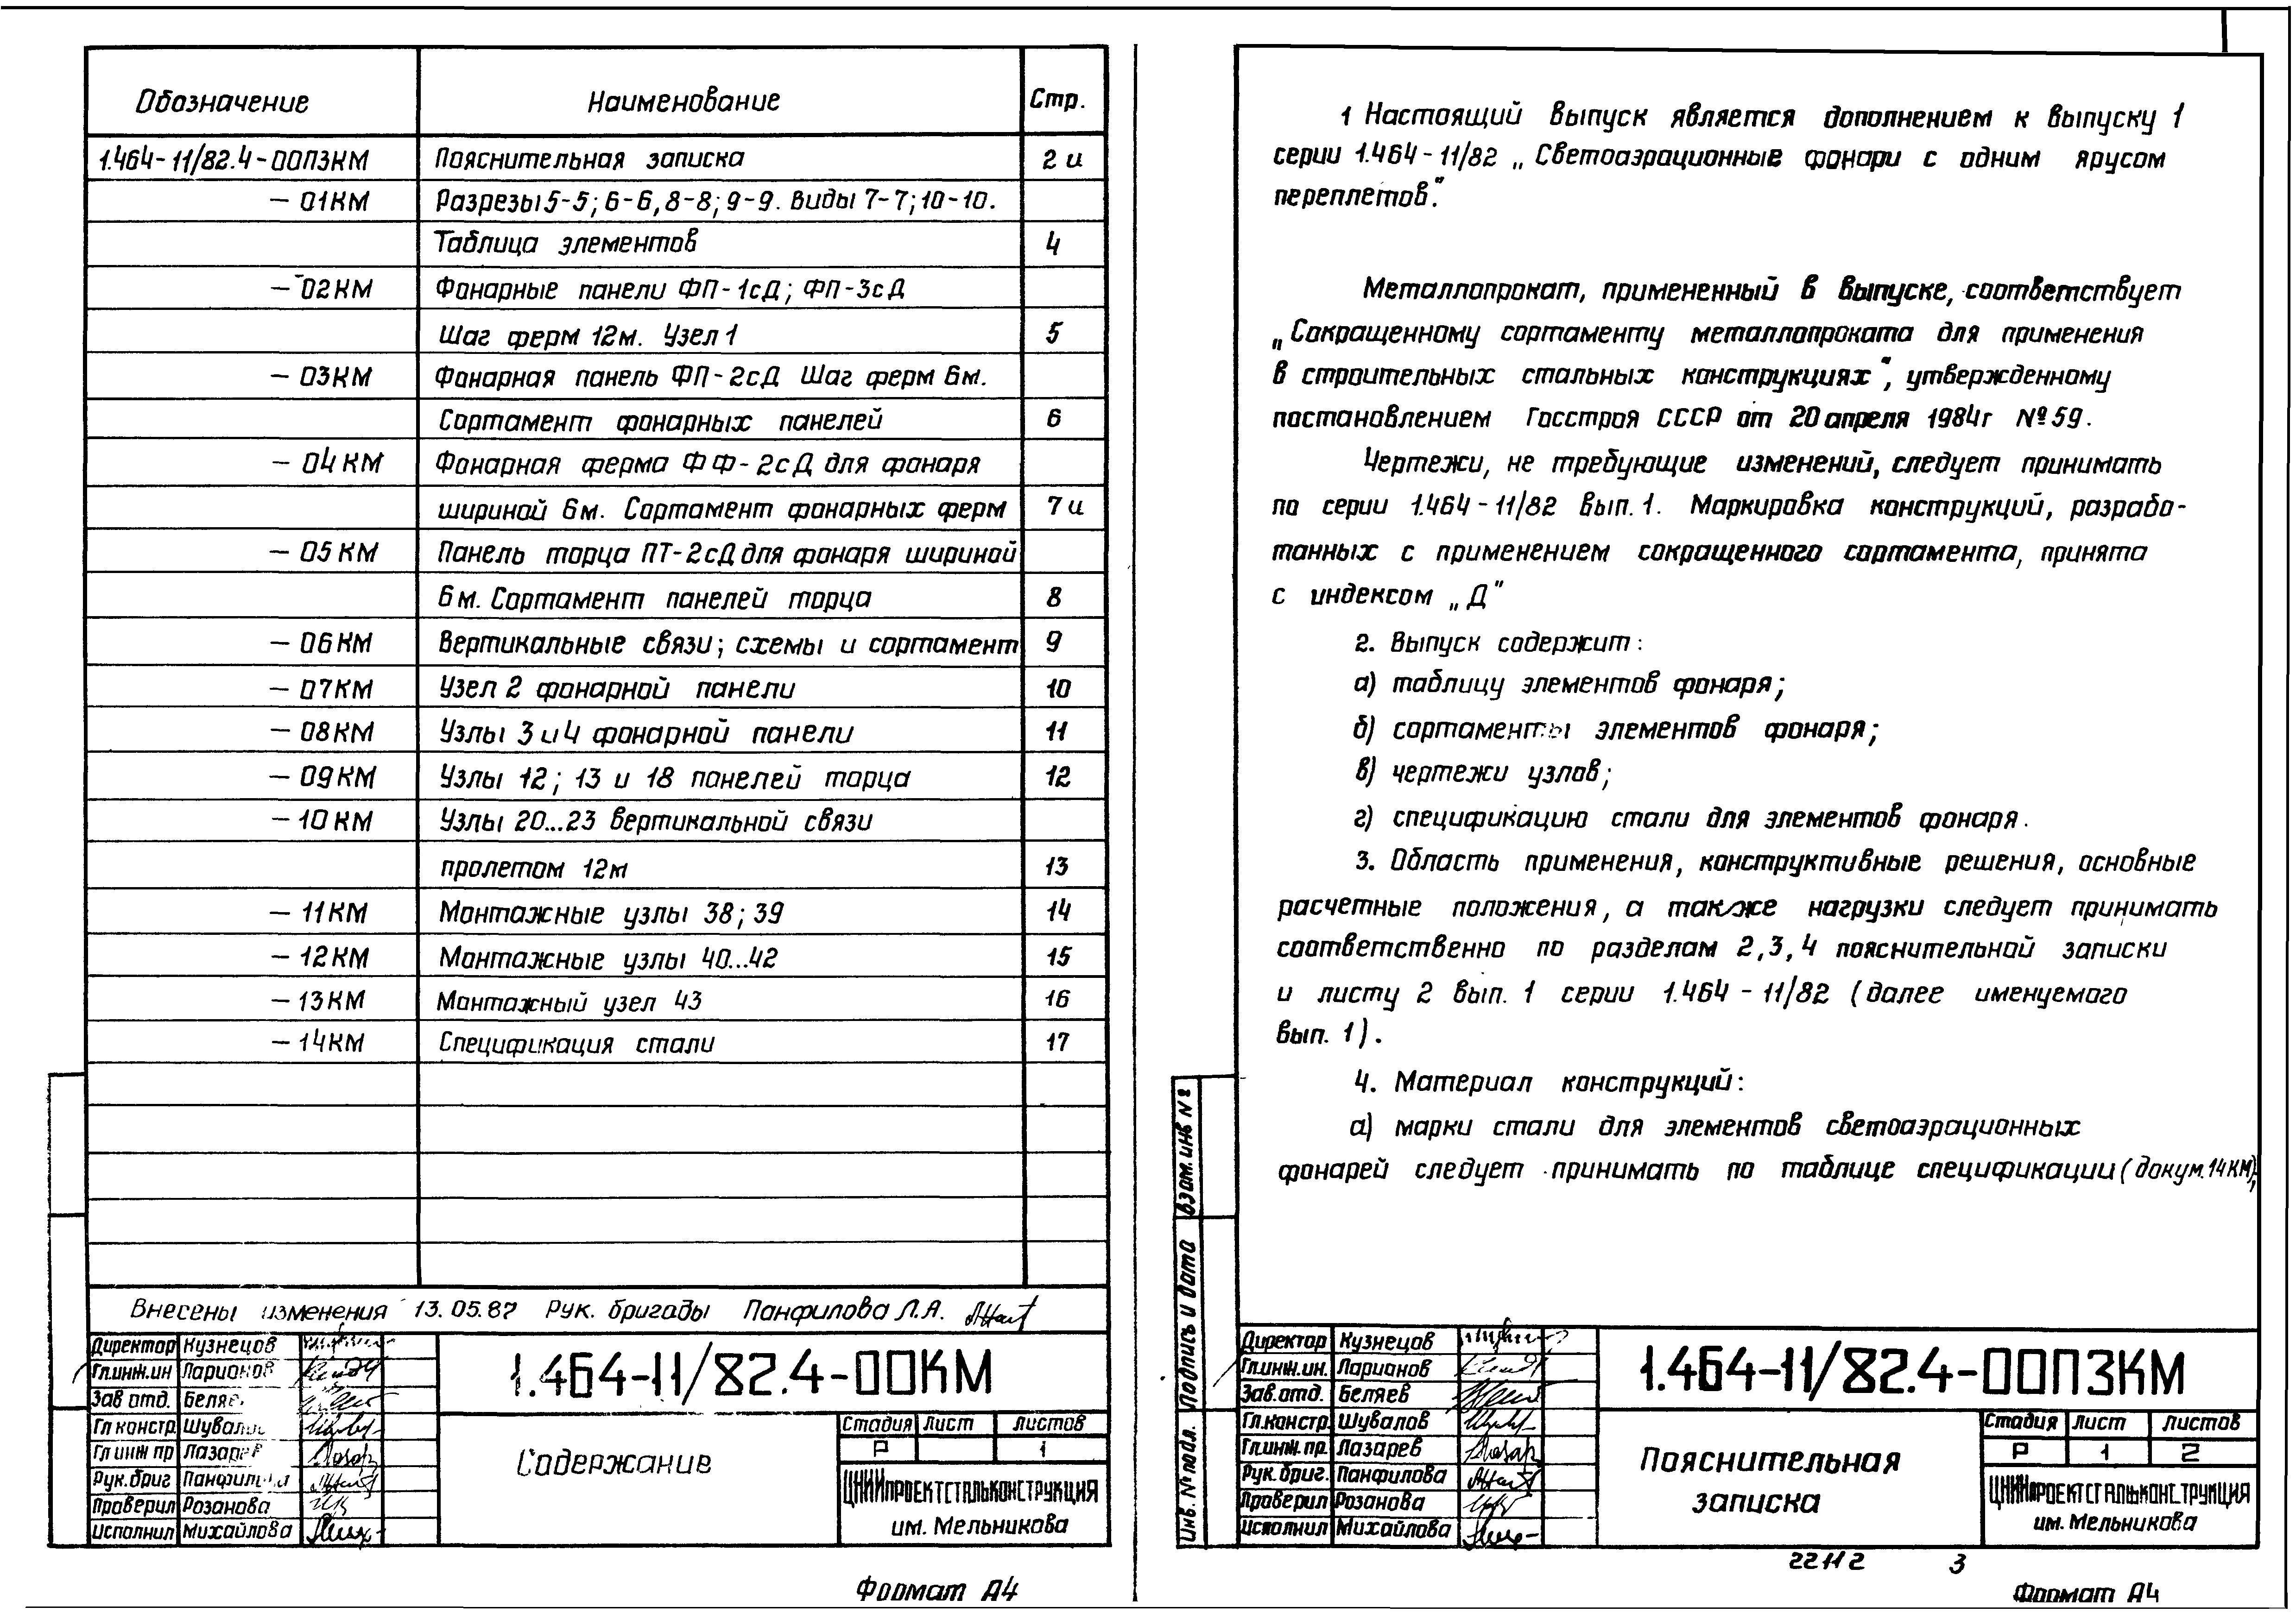 Обозначение Наименование Стр.
1.464-11/82.4-00ПЗКМ Пояснительная записка 2и
- 01КМ Разрезы 5-5; 6-6, 8-8; 9-9. Виды 7-7; 10-10.
Таблица элементов 4
- 02КМ Фонарные панели ФП-1сД; ФП-3сД
Шаг ферм 12м. Узел 1 5
- 03КМ Фонарная панель ФП-2сД Шаг ферм 6м.
Сортамент фонарных панелей 6
- 04КМ Фонарная ферма ФФ-2сД для фонаря
шириной 6м. Сортамент фонарных ферм 7и
- 05КМ Панель торца ПТ-2сД для фонаря шириной
6м. Сортамент панелей торца 8
- 06КМ Вертикальные связи; схемы и сортамент 9
- 07КМ Узел 2 фонарной панели 10
- 08КМ Узлы 3 и 4 фонарной панели 11
- 09КМ Узлы 12; 13 и 18 панелей торца 12
- 10КМ Узлы 20...23 вертикальной связи
пролетом 12м 13
- 11КМ Монтажные узлы 38; 39 14
- 12КМ Монтажные узлы 40...42 15
- 13КМ Монтажный узел 43 16
- 14КМ Спецификация стали 17
Внесены изменения 13.05.87 Рук. бригады Панфилова Л.А.
Директор Кузнецов
Гл.инж.ин Ларионов
Зав отд. Беляев
Гл констр. Шувалов
Гл инж пр Лазарев
Рук.бриг Панфилова
Проверил Розанова
Исполнил Михайлова
1.464-11/82.4-00КМ
Содержание
Стадия Лист Листов
Р 1
ЦНИИПРОЕКТСТАЛЬКОНСТРУКЦИЯ
им. Мельникова
Формат А4
1 Настоящий выпуск является дополнением к выпуску 1
серии 1.464-11/82 „Светоаэрационные фонари с одним ярусом
переплетов".
Металлопрокат, примененный в выпуске, соответствует
„Сокращенному сортаменту металлопроката для применения
в строительных стальных конструкциях", утвержденному
постановлением Госстроя СССР от 20 апреля 1984г №59.
Чертежи, не требующие изменений, следует принимать
по серии 1.464-11/82 вып. 1. Маркировка конструкций, разрабо-
танных с применением сокращенного сортамента, принята
с индексом „Д"
2. Выпуск содержит:
а) таблицу элементов фонаря;
б) сортаменты элементов фонаря;
в) чертежи узлов;
г) спецификацию стали для элементов фонаря.
3. Область применения, конструктивные решения, основные
расчетные положения, а также нагрузки следует принимать
соответственно по разделам 2,3,4 пояснительной записки
и листу 2 вып. 1 серии 1.464-11/82 (далее именуемого
вып. 1).
4. Материал конструкций:
а) марки стали для элементов светоаэрационных
фонарей следует принимать по таблице спецификации (докум.14КМ);
Взам. инв №
Подпись и дата
Инв. № подл.
Директор Кузнецов
Гл.инж.ин. Ларионов
Зав.отд. Беляев
Гл.констр. Шувалов
Гл.инж.пр. Лазарев
Рук.бриг. Панфилова
Проверил Розанова
Исполнил Михайлова
1.464-11/82.4-00ПЗКМ
Пояснительная
записка
Стадия Лист Листов
Р 1 2
ЦНИИПРОЕКТСТАЛЬКОНСТРУКЦИЯ
им. Мельникова
22112 3
Формат А4